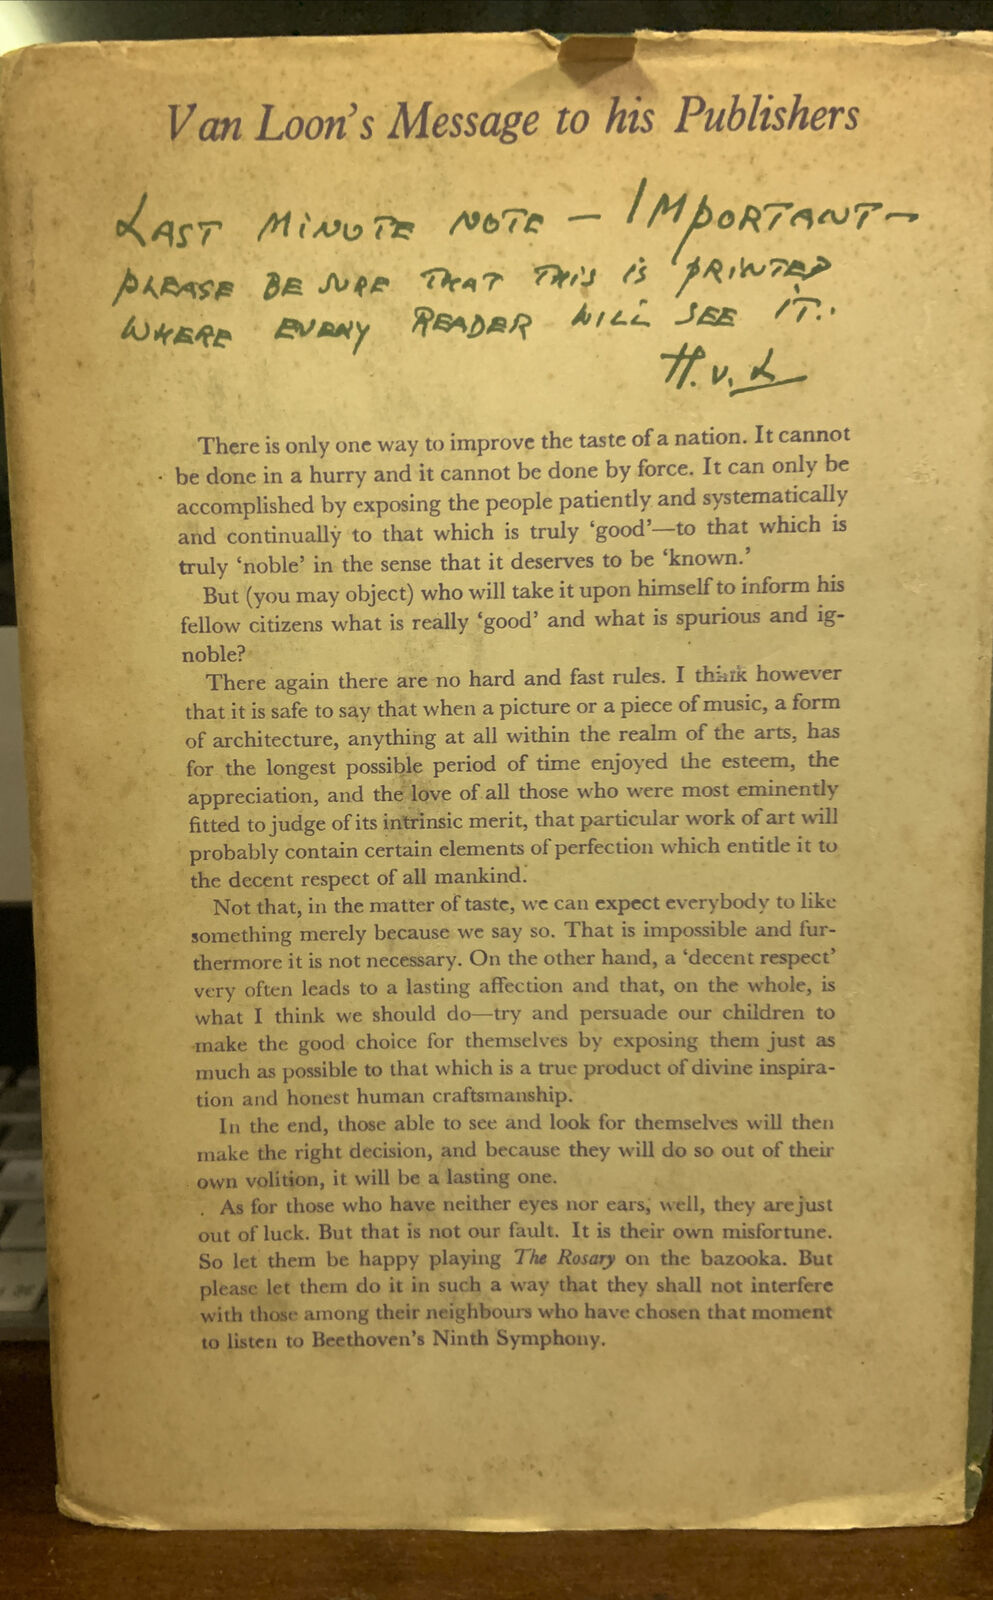 Van Loon's Message to his Publishers
LAST MINUTE NOTE – IMPORTANT –
PLEASE BE SURE THAT THIS IS PRINTED
WHERE EVERY READER WILL SEE IT..
H.v.L
There is only one way to improve the taste of a nation. It cannot
be done in a hurry and it cannot be done by force. It can only be
accomplished by exposing the people patiently and systematically
and continually to that which is truly ‘good’—to that which is
truly ‘noble’ in the sense that it deserves to be ‘known.’
But (you may object) who will take it upon himself to inform his
fellow citizens what is really ‘good’ and what is spurious and ig-
noble?
There again there are no hard and fast rules. I think however
that it is safe to say that when a picture or a piece of music, a form
of architecture, anything at all within the realm of the arts, has
for the longest possible period of time enjoyed the esteem, the
appreciation, and the love of all those who were most eminently
fitted to judge of its intrinsic merit, that particular work of art will
probably contain certain elements of perfection which entitle it to
the decent respect of all mankind.
Not that, in the matter of taste, we can expect everybody to like
something merely because we say so. That is impossible and fur-
thermore it is not necessary. On the other hand, a ‘decent respect’
very often leads to a lasting affection and that, on the whole, is
what I think we should do—try and persuade our children to
make the good choice for themselves by exposing them just as
much as possible to that which is a true product of divine inspira-
tion and honest human craftsmanship.
In the end, those able to see and look for themselves will then
make the right decision, and because they will do so out of their
own volition, it will be a lasting one.
As for those who have neither eyes nor ears, well, they are just
out of luck. But that is not our fault. It is their own misfortune.
So let them be happy playing The Rosary on the bazooka. But
please let them do it in such a way that they shall not interfere
with those among their neighbours who have chosen that moment
to listen to Beethoven's Ninth Symphony.